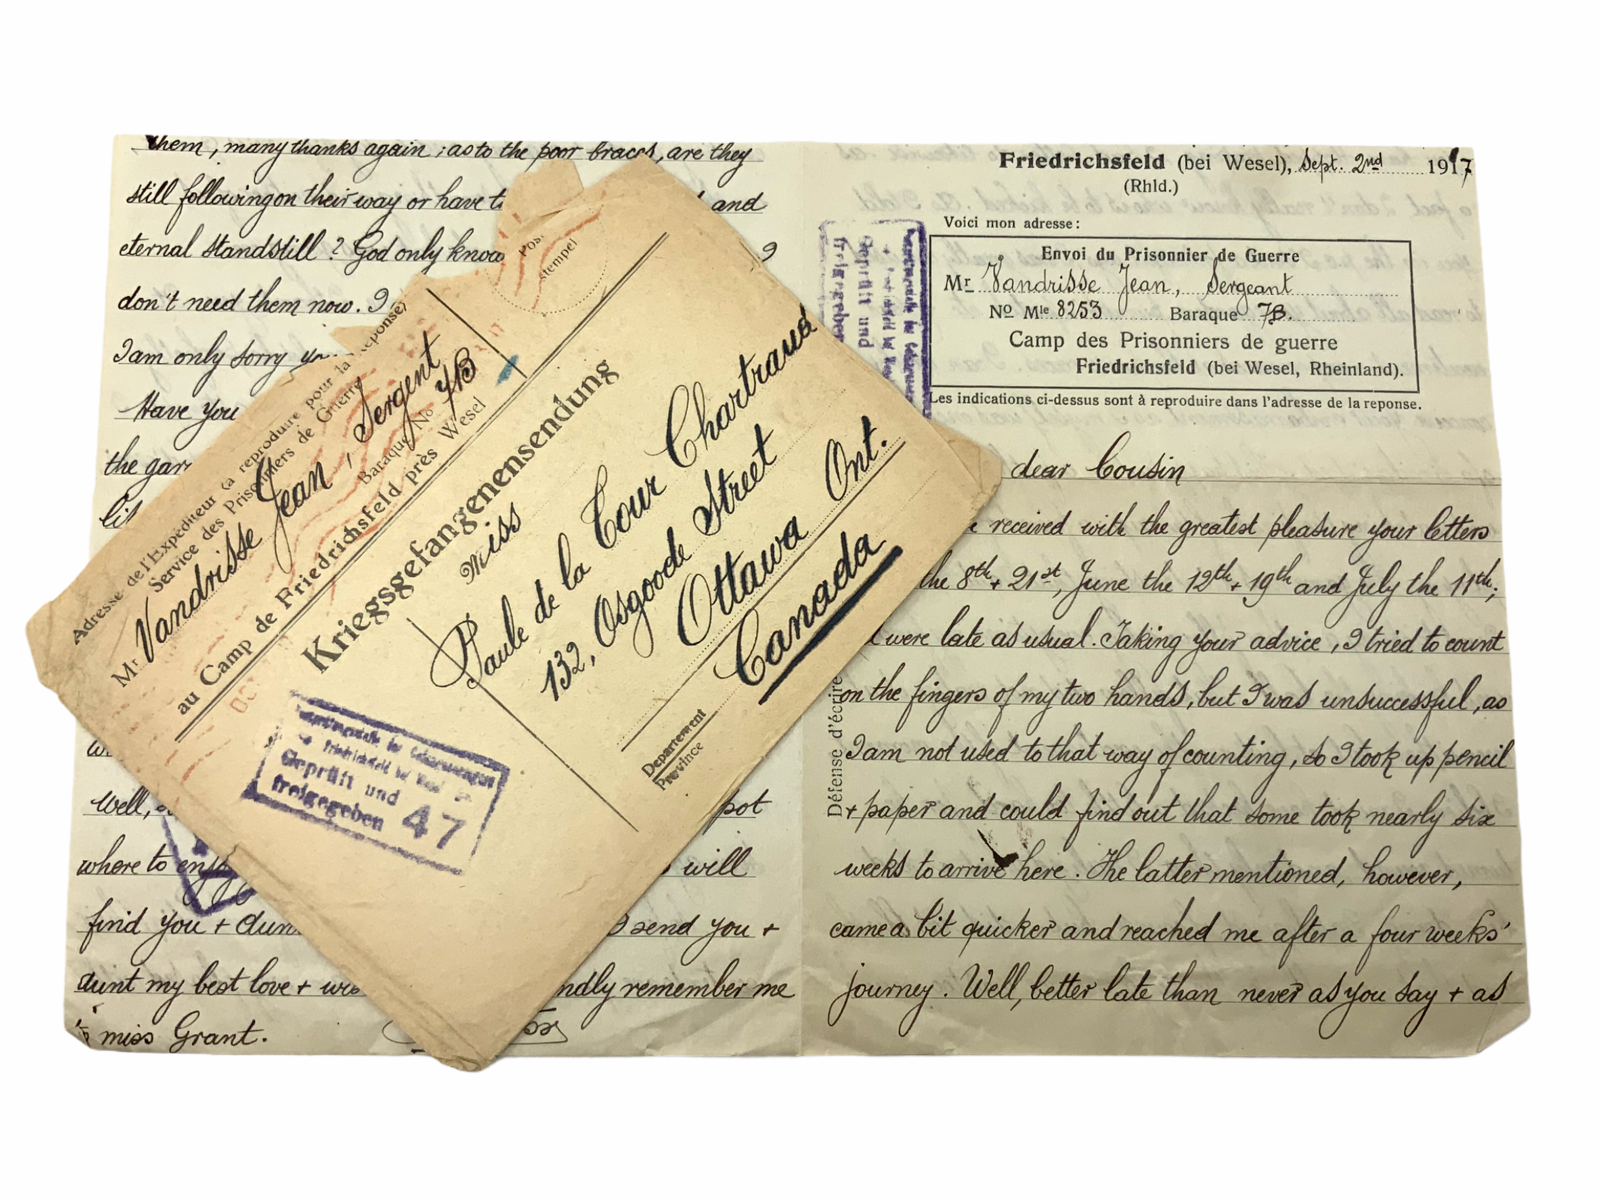 them, many thanks again; as to the poor braces, are they
still following on their way or have
and
eternal standstill? God only knows
don't need them now. I
I am only sorry
Have you
the
Well,
pot
where to enjoy
will
find you +
send you +
aunt my best love +
kindly remember me
miss Grant.
Adresse de l'Expéditeur (a reproduire pour la reponse)
Service des Prisonniers de Guerre
Mr Vandrisse Jean, Sergent
Baraque No 7B
au Camp de Friedrichsfeld près Wesel
Post
stempel
Kriegsgefangenensendung
Miss
Paule de la Cour Chartraud
132, Osgoode Street
Ottawa Ont.
Canada
Departement
Province
Geprüft und
freigegeben 47
Friedrichsfeld (bei Wesel), Sept. 2nd 1917
(Rhld.)
Voici mon adresse:
Envoi du Prisonnier de Guerre
Mr Vandrisse Jean, Sergeant
No Mle 8253 Baraque 7B.
Camp des Prisonniers de guerre
Friedrichsfeld (bei Wesel, Rheinland).
Les indications ci-dessus sont à reproduire dans l'adresse de la reponse.
Geprüft und
freigegeben
Défense d'écrire
dear Cousin
received with the greatest pleasure your letters
the 8th + 21st, June the 12th + 19th and July the 11th;
were late as usual. Taking your advice, I tried to count
on the fingers of my two hands, but I was unsuccessful, as
I am not used to that way of counting, so I took up pencil
+ paper and could find out that some took nearly six
weeks to arrive here. The latter mentioned, however,
came a bit quicker and reached me after a four weeks'
journey. Well, better late than never as you say + as